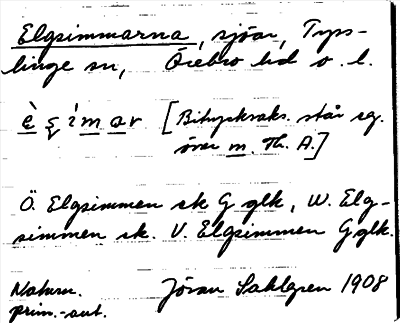 Elgsimmarna, sjöar, Tyss-
linge sn, Örebro hd o. l.
[Bitryckraks. står eg.
över m. Th. A.]
Ö. Elgsimmen sk G glk, W. Elg-
simmen sk. V. Elgsimmen G glk.
Naturn. Jöran Sahlgren 1908
prim.-aut.